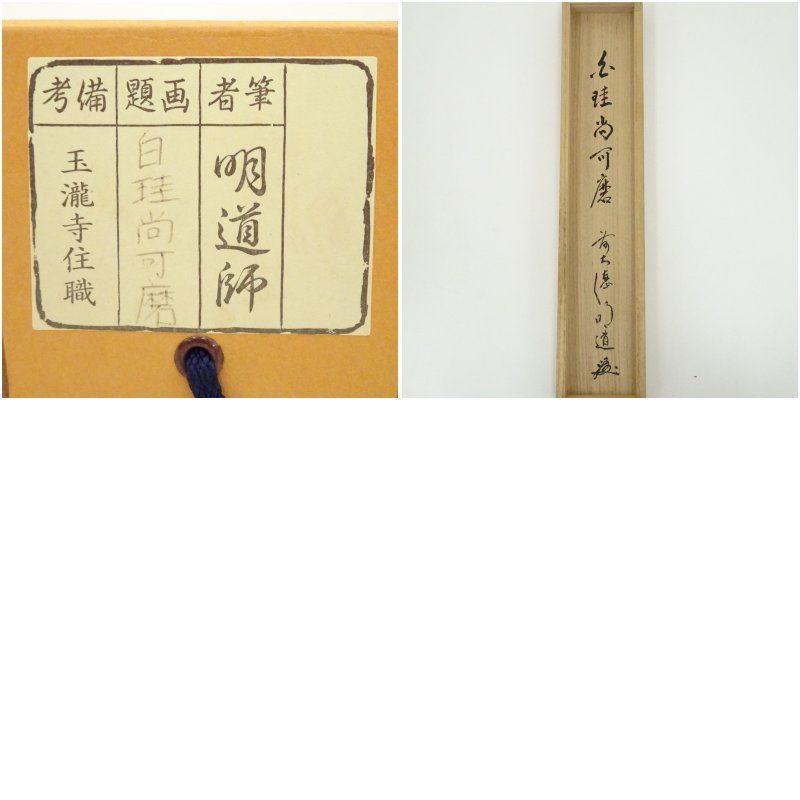 筆者
明道師
画題
白珪尚可磨
備考
玉瀧寺住職
白珪尚可磨
前大徳 明道